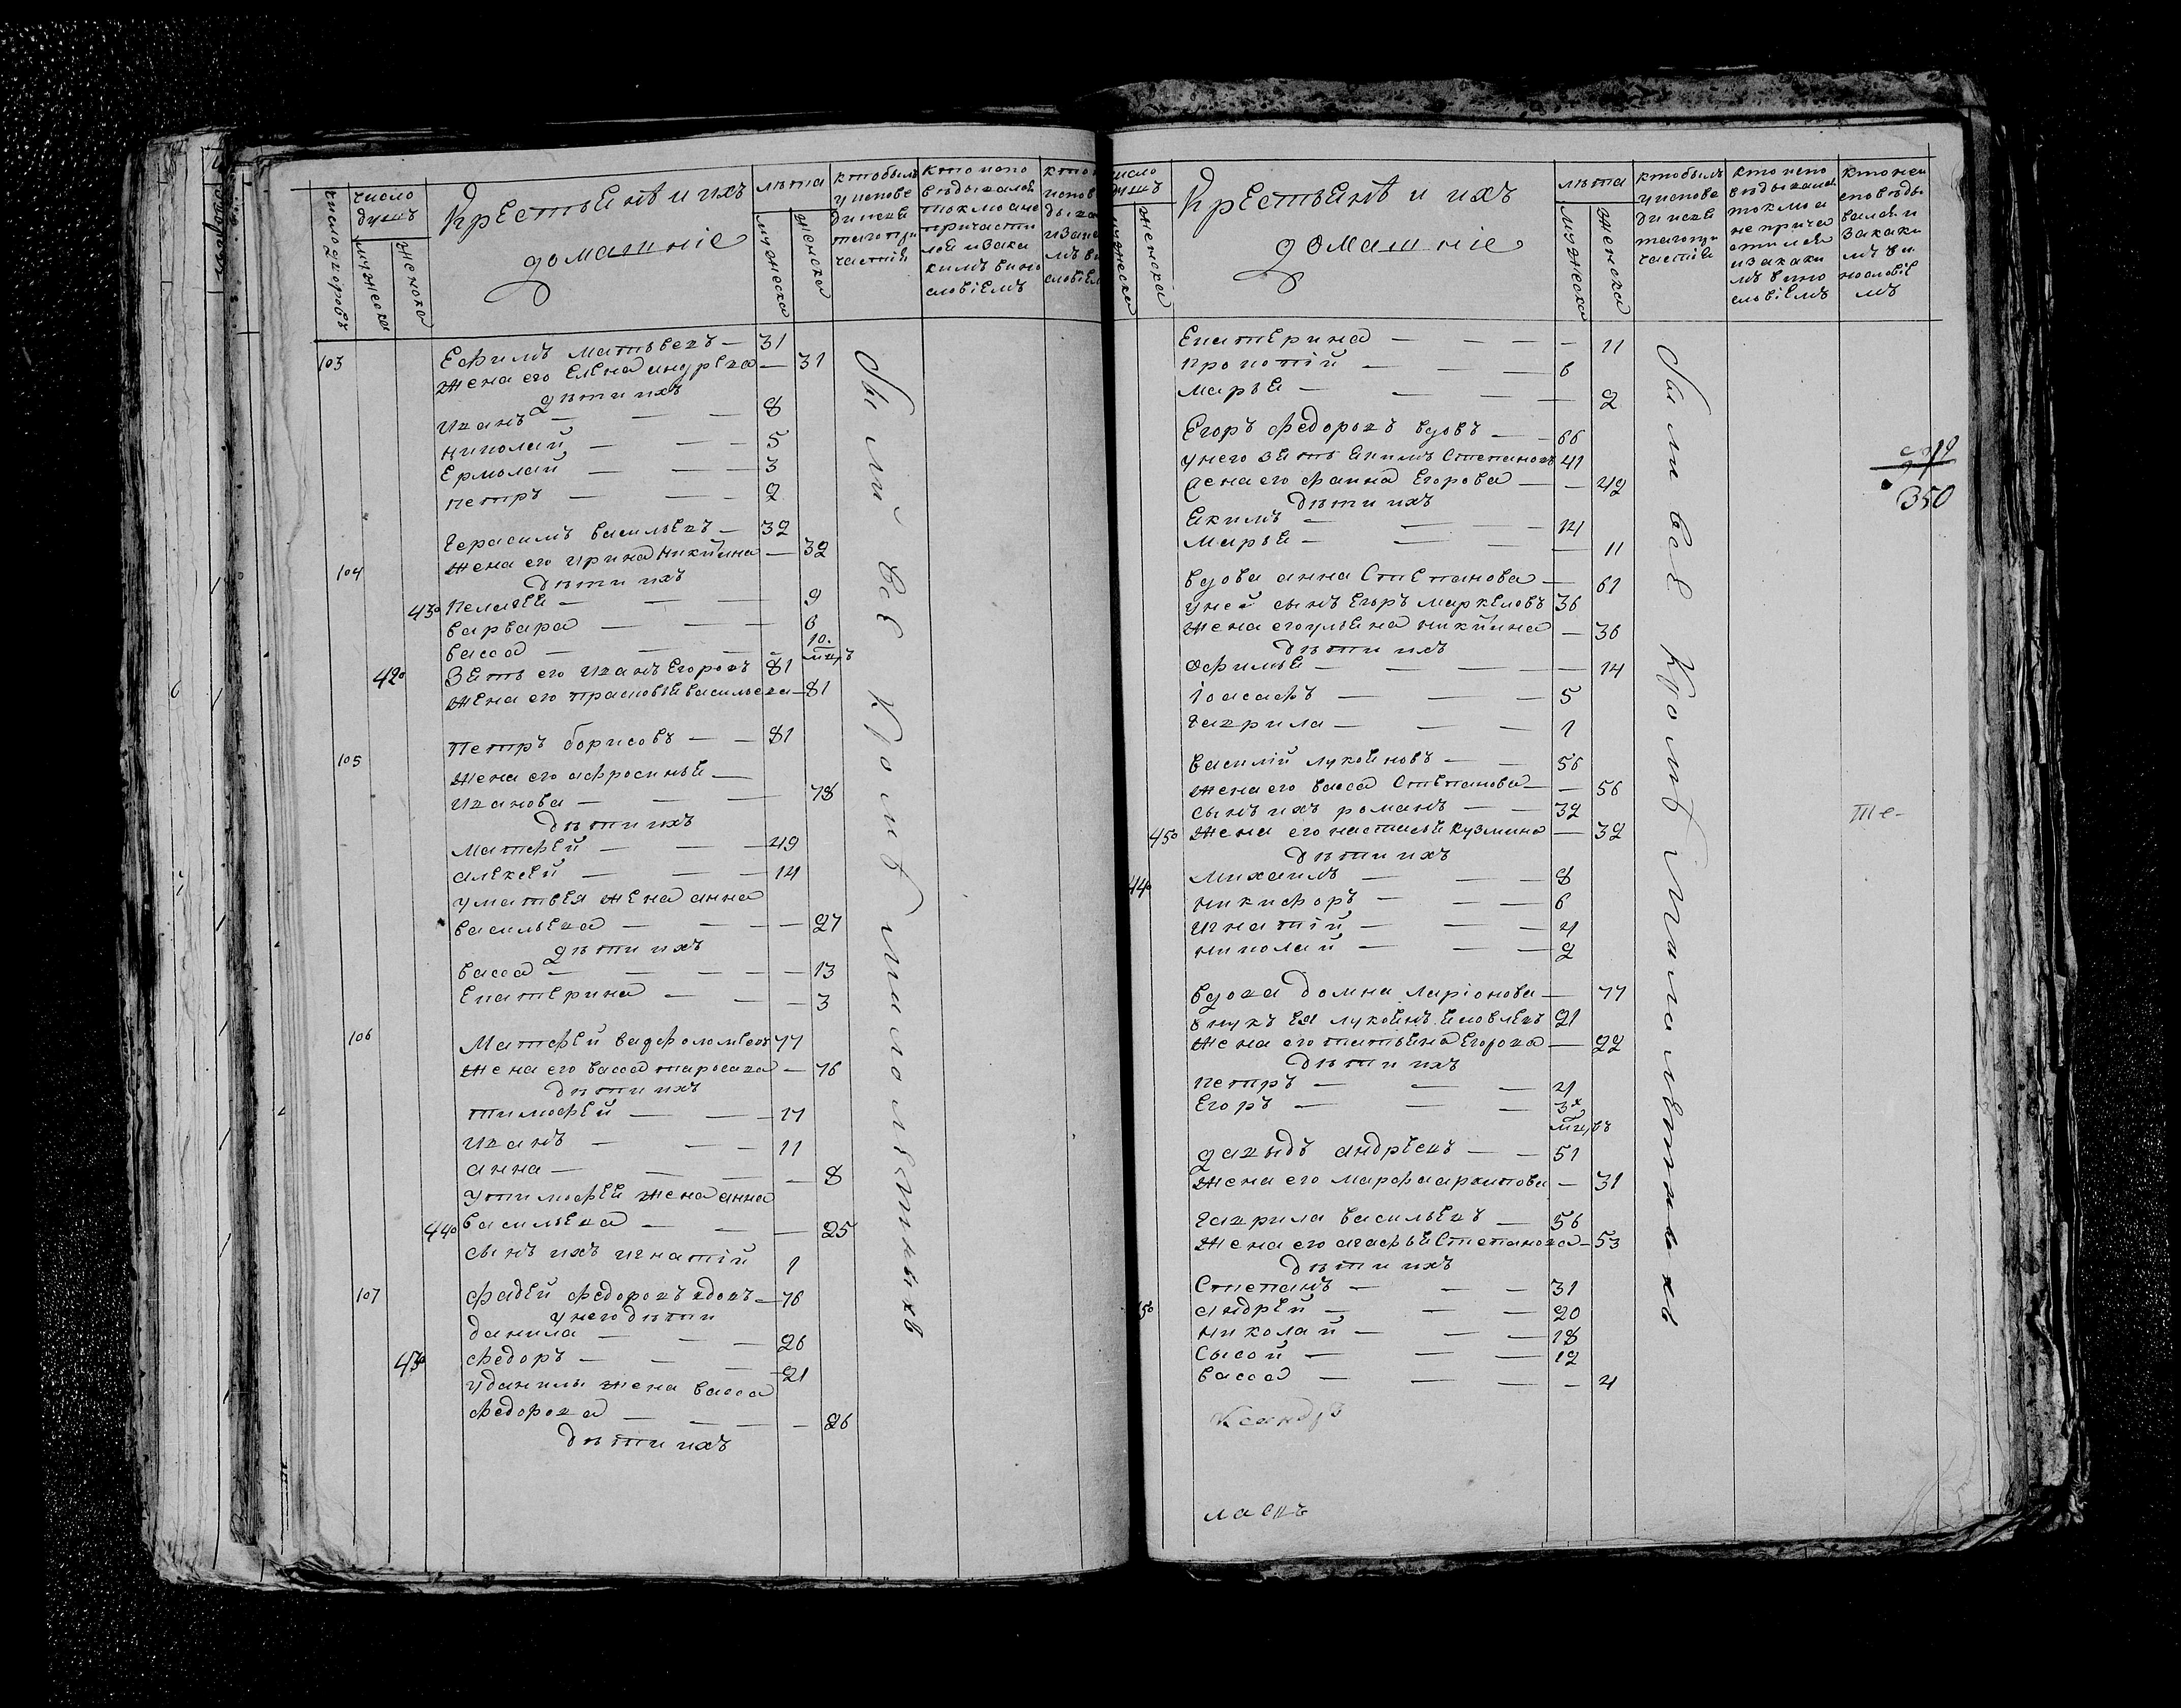 число дворовъ
число душъ
мужеска
женска
Крестьянѣ и ихъ
домашніе
лѣта
мужеска
женска
кто былъ
у испове
ди и свя
таго при
частія
Кто испо
вѣдывался
токмо а не
причасти
лся и за ка
кимъ вино
словіемъ
103
Ефимъ Матвѣевъ — 31
жена его Елена Андрѣева — 31
дѣти ихъ
Иванъ — 8
Николай — 5
Ермолай — 3
Петръ — 2
Герасимъ Васильевъ — 32
104 жена его Ирина Никитина — 32
дѣти ихъ
430 Пелагея — 9
Варвара — 6
Васса — 10. мцъ
420 Зять его Иванъ Егоровъ 81
жена его Прасковья Васильева — 81
105 Петръ Борисовъ — 81
жена его Афросинья —
Иванова — 78
дѣти ихъ
Матфей — 49
Алексей — 14
у Матвея жена Анна
Васильева — 27
дѣти ихъ
Васса — 13
Екатерина — 3
106 Матфей Варфоломеевъ 77
жена его Васса Тарасова — 76
дѣти ихъ
Тимофей — 17
Иванъ — 11
Анна — 8
у Тимофея жена Анна
440 Васильева — 25
сынъ ихъ Игнатій 1
107 Фадей Федоровъ вдовъ — 76
у него дѣти
Данила — 26
430 Федоръ — 21
у Данилы жена Васса
Федорова — 26
дѣти ихъ
Были все кромѣ малолѣтныхъ
число
душъ
мужеска
женска
Крестьянѣ и ихъ
домашніе
лѣта
мужеска
женска
кто былъ
у испове
ди и свя
таго при
частія
кто испо
вѣдывался
токмо а
не прича
стился
и за каки
мъ вино
словіемъ
кто не и
сповѣды
вался и
за каки
мъ ви
нословіе
мъ
Екатерина — 11
Прокопій — 6
Марья — 2
Егоръ Федоровъ вдовъ — 66
у него зять Якимъ Степановъ 41
жена его Фаина Егорова — 42
дѣти ихъ
Якимъ — 14
Марья — 11
вдова Анна Степанова — 61
у ней сынъ Егоръ Маркеловъ 36
жена его Ульяна Никитина — 36
дѣти ихъ
Афимья — 14
Іоасафъ — 5
Гаврила — 1
Василій Лукояновъ — 56
жена его Васса Степанова — 56
сынъ ихъ Романъ — 32
450 жена его Настасья Кузмина — 32
дѣти ихъ
440 Михаилъ — 8
Никифоръ — 6
Игнатій — 4
Николай — 2
вдова Домна Ларіонова — 77
внукъ ея Лукоянъ Яковлевъ 21
жена его Татьяна Егорова — 22
дѣти ихъ
Петръ — 4
Егоръ — 3х мцъвъ
Давыдъ Андрѣевъ — 51
жена его Марфа Архипова — 31
Гаврила Васильевъ — 56
жена его Агафья Степанова — 53
дѣти ихъ
Степанъ — 31
50 Андрей — 20
Николай — 18
Сысой — 12
Васса — 4
Были все кромѣ малолѣтныхъ
350